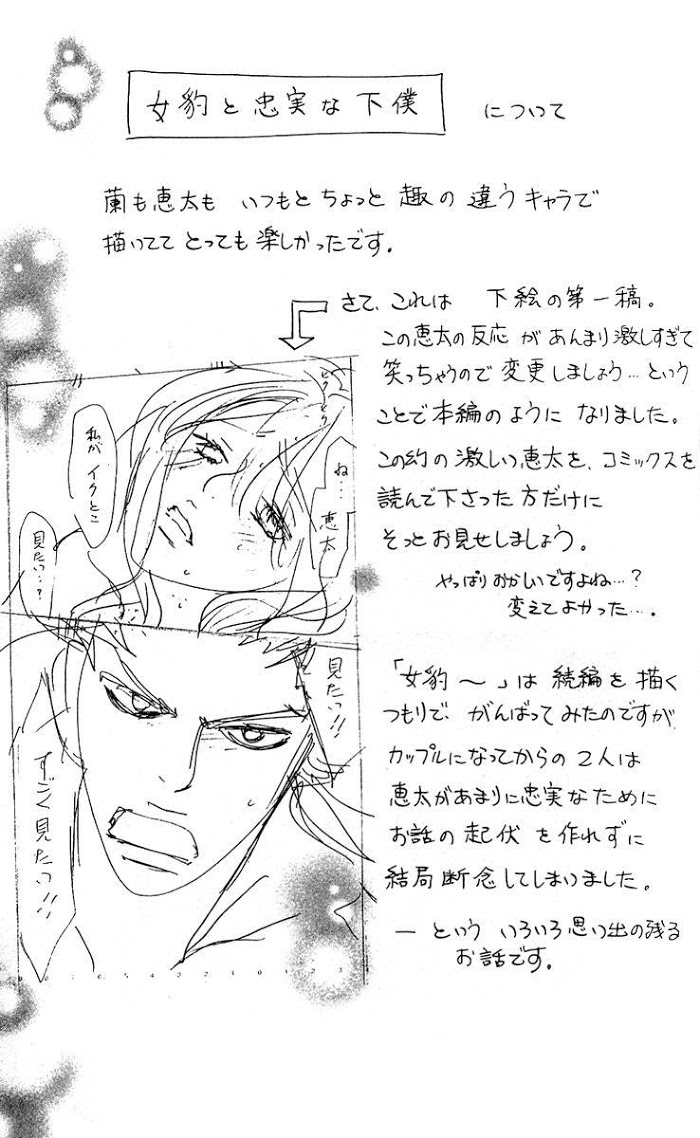 女豹と忠実な下僕 について
蘭も恵太も いつもとちょっと 趣の 違うキャラで
描いてて とっても楽しかったです。
さて、これは 下絵の第一稿。
この恵太の反応 が あんまり激しすぎて
笑っちゃうので 変更しましょう…という
ことで本編のように なりました。
この幻の激しい恵太を、コミックスを
読んで下さった方だけに
そっとお見せしましょう。
やっぱりおかしいですよね…?
変えてよかった…。
「女豹〜」は 続編を描く
つもりで、がんばってみたのですが
カップルになってからの2人は
恵太があまりに忠実なために
お話の起伏を作れずに
結局断念してしまいました。
― という いろいろ思い出の残る
お話です。
ビクビク
ね…
恵太
私が
イクとこ
見たい…?
見たいっ!!
すごく見たいっ!!